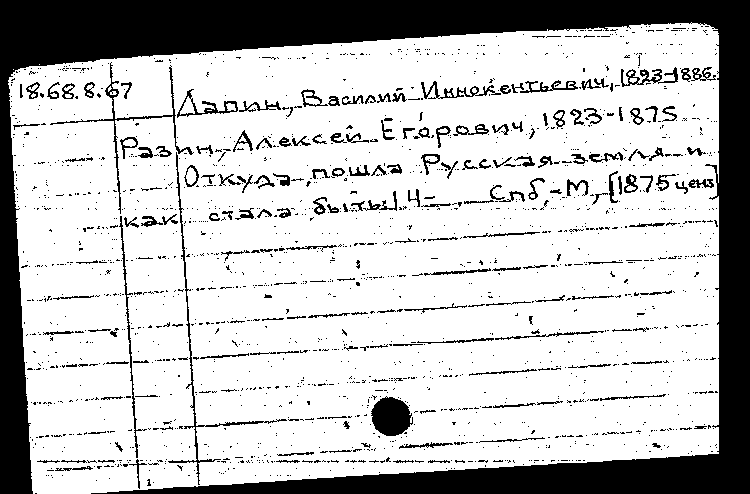 18.68.8.67
Лапин, Василий Иннокентьевич, 1823-1886.
Разин, Алексей Егорович, 1823-1875
Откуда пошла Русская земля и
как стала быть! 4- . Спб,-М, [1875 ценз]